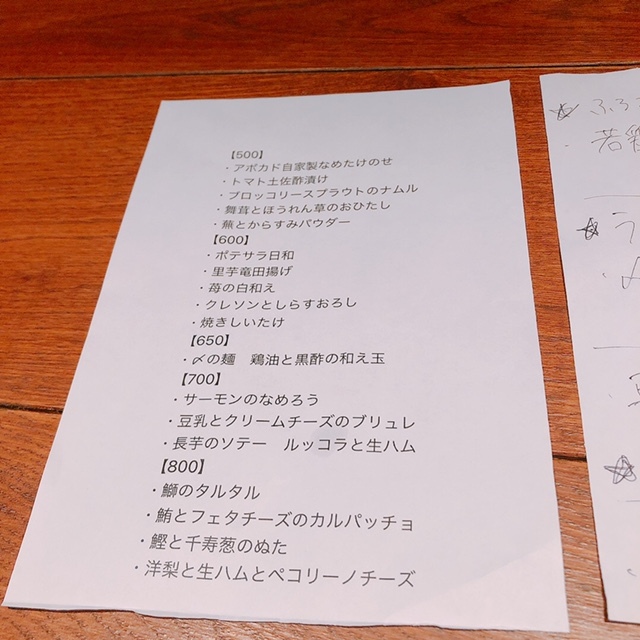 【500】
・アボカド自家製なめたけのせ
・トマト土佐酢漬け
・ブロッコリースプラウトのナムル
・舞茸とほうれん草のおひたし
・蕪とからすみパウダー
【600】
・ポテサラ日和
・里芋竜田揚げ
・苺の白和え
・クレソンとしらすおろし
・焼きしいたけ
【650】
・〆の麺　鶏油と黒酢の和え玉
【700】
・サーモンのなめろう
・豆乳とクリームチーズのブリュレ
・長芋のソテー　ルッコラと生ハム
【800】
・鰤のタルタル
・鮪とフェタチーズのカルパッチョ
・鰹と千寿葱のぬた
・洋梨と生ハムとペコリーノチーズ
☆ ふろ
・若鶏
☆ う
・〆
☆